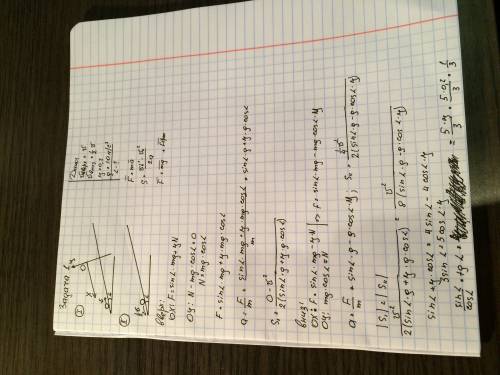 Задача 1
Дано:
g = 10 м/с²
α - ?
вверх:
OX: F = sinα·mg + μN
OY: N - mg·cosα = 0
N = mg·cosα
F = sinα·mg + μ·mg·cosα
a = F/m = (sinα·mg + μ·mg·cosα)/m = sinα·g + μ·g·cosα
S₁ = (0 - υ²)/(2(sinα·g + μ·g·cosα))
вниз:
OX: F = sinα·mg - μN
OY: mg·cosα = N
F = sinα·mg - mg·cosα·μ
a = F/m = sinα·g - g·cosα·μ;
|S₁| = |S₂|
υ²/(2(sinα·g + μ·g·cosα)) = υ²/(8(sinα·g - g·cosα·μ))
sinα + μ·cosα = 4sinα - 4cosα·μ
3sinα = 5cosα·μ
sinα/cosα = tgα = 5·μ/3 = 5·0,2/3 = 1/3